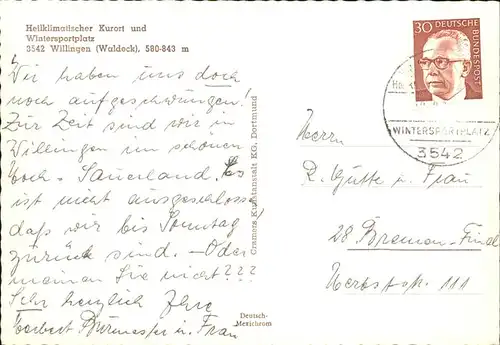 Heilklimatischer Kurort und
Wintersportplatz
3542 Willingen (Waldeck), 580-843 m
Wir haben uns doch
noch aufgeschwungen!
Zur Zeit sind wir in
Willingen im schönen
Hoch-Sauerland. Es
ist nicht ausgeschlosse
daß wir bis Sonntag
zurück sind. – Oder
meinen Sie nicht???
Sehr herzlich Ihre
Herbert Burmester u. Frau
Cramers Kunstanstalt KG, Dortmund
Deutsch-
Merichrom
30 DEUTSCHE
BUNDESPOST
WINTERSPORTPLATZ
3542
Herrn
R. Gütte u. Frau
28 Bremen-Find
Herbststr. 111